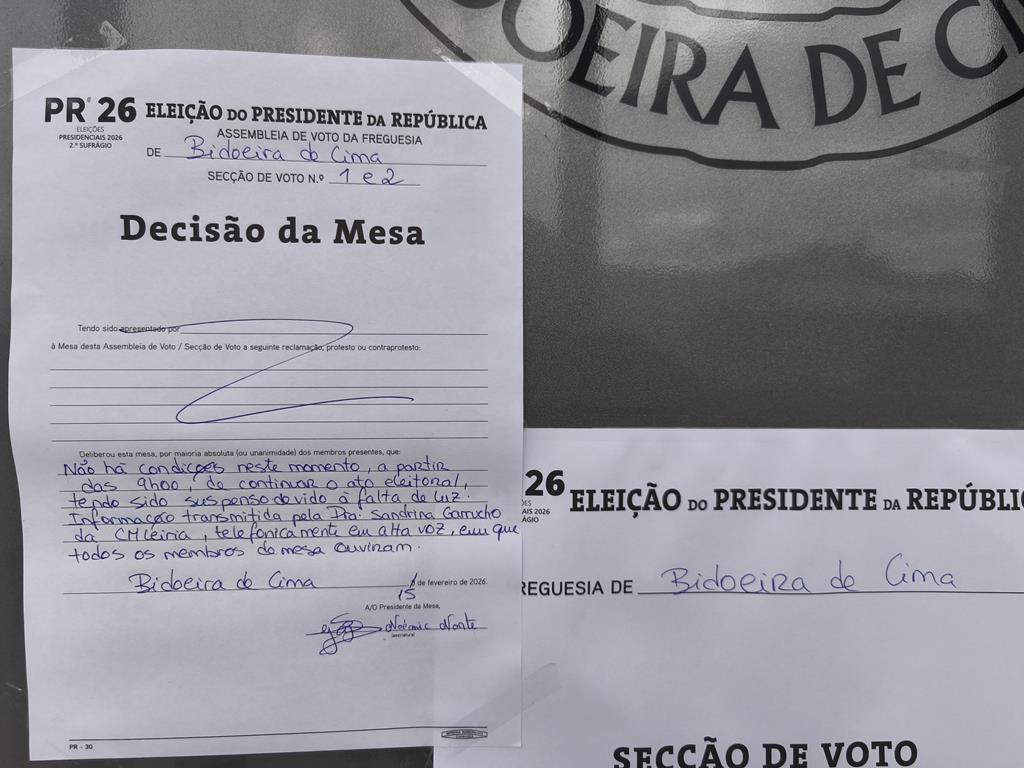 OEIRA DE CI
PR'26 ELEIÇÃO DO PRESIDENTE DA REPÚBLICA
ELEIÇÕES
PRESIDENCIAIS 2026
2.º SUFRÁGIO
ASSEMBLEIA DE VOTO DA FREGUESIA
DE Bidoeira de Cima
SECÇÃO DE VOTO N.º 1 e 2
Decisão da Mesa
Tendo sido apresentado por
à Mesa desta Assembleia de Voto / Secção de Voto a seguinte reclamação, protesto ou contraprotesto:
Deliberou esta mesa, por maioria absoluta (ou unanimidade) dos membros presentes, que:
Não há condições neste momento, a partir
das 9h00, de continuar o ato eleitoral,
tendo sido suspenso devido à falta de luz.
Informação transmitida pela Dra. Sandrina Garrucho
da CMLeiria, telefonicamente em alta voz, em que
todos os membros da mesa ouviram.
Bidoeira de Cima de fevereiro de 2026.
15
A/O Presidente da Mesa,
Noémie Norte
(assinatura)
PR - 30
26 ELEIÇÃO DO PRESIDENTE DA REPÚBLIC
ES
AIS 2026
ÁGIO
REGUESIA DE Bidoeira de Cima
SECÇÃO DE VOTO